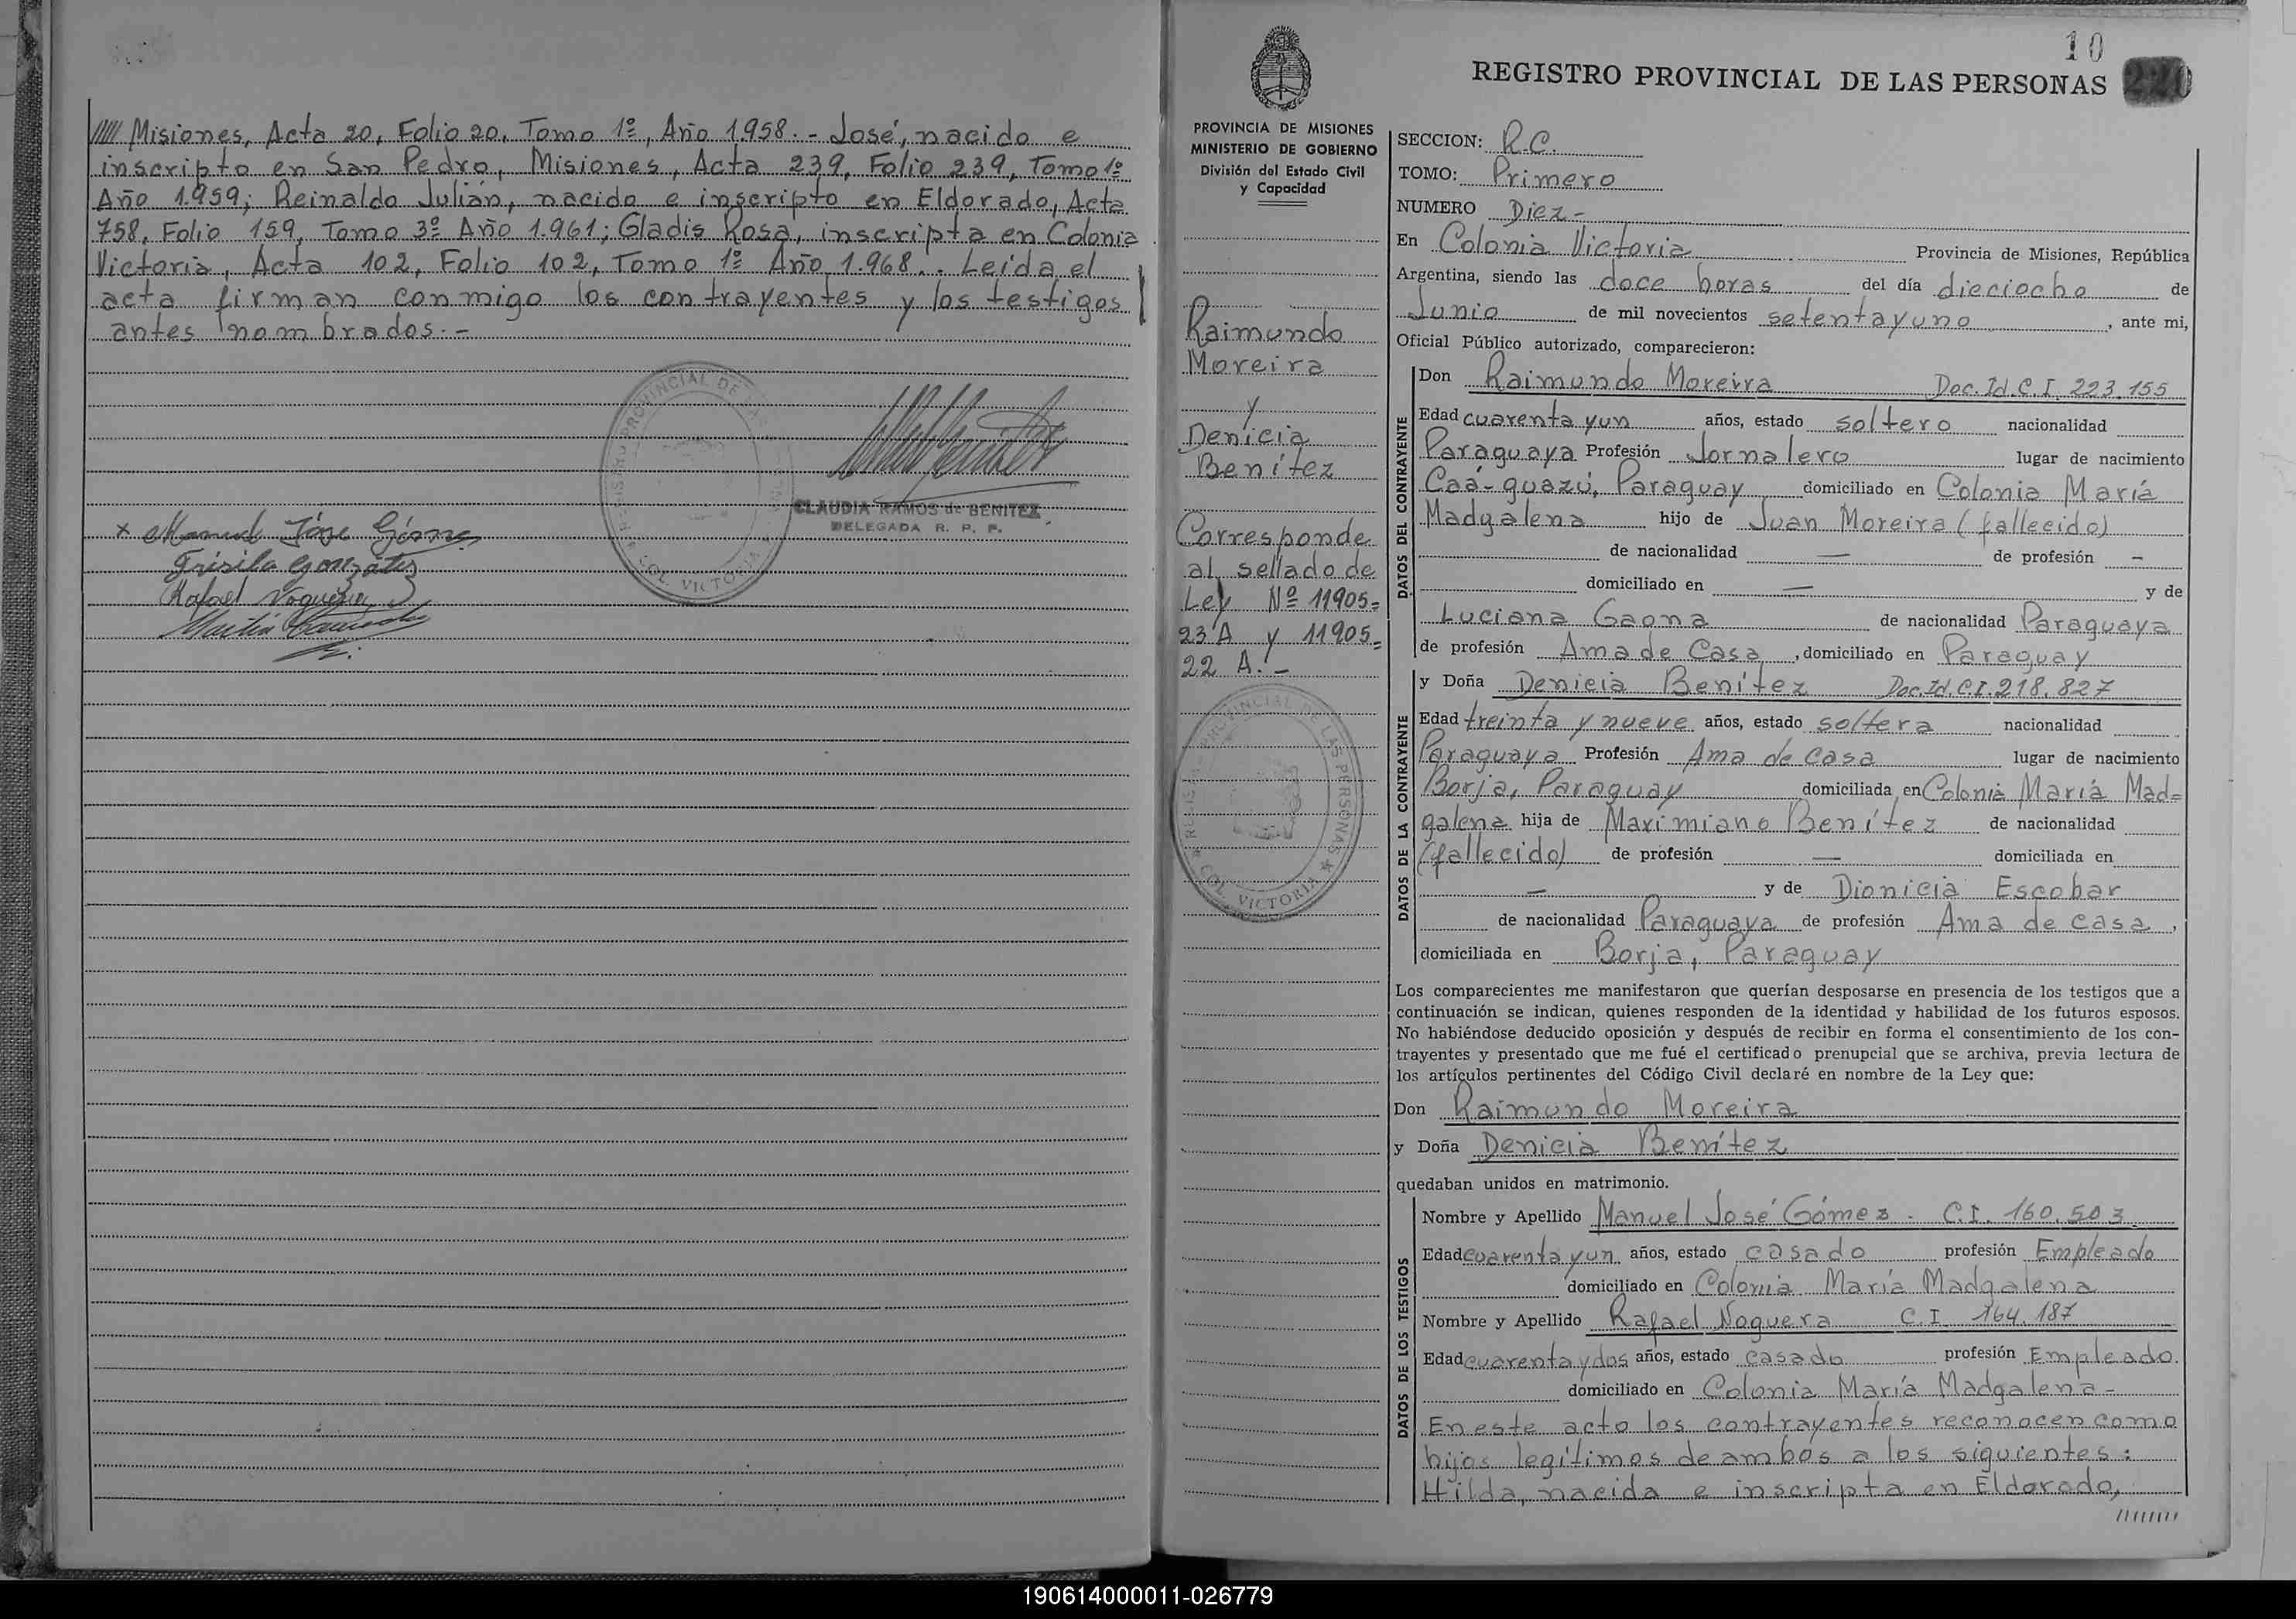 ///// Misiones, Acta 20, Folio 20, Tomo 1º, Año 1.958.- José, nacido e
inscripto en San Pedro, Misiones, Acta 239, Folio 239, Tomo 1º
Año 1.959; Reinaldo Julián, nacido e inscripto en Eldorado, Acta
758, Folio 159, Tomo 3º Año 1.961; Gladis Rosa, inscripta en Colonia
Victoria, Acta 102, Folio 102, Tomo 1º Año 1.968.. Leída el
acta firman conmigo los contrayentes y los testigos
antes nombrados.-
REGISTRO PROVINCIAL DE LAS
COL. VICTORIA
CLAUDIA RAMOS de BENITEZ
DELEGADA R. P. P.
x Manuel José Gómez
González
Rafael Noguera
10
REGISTRO PROVINCIAL DE LAS PERSONAS
PROVINCIA DE MISIONES
MINISTERIO DE GOBIERNO
División del Estado Civil
y Capacidad
Raimundo
Moreira
y
Denicia
Benítez
Corresponde
al sellado de
Ley Nº 11905=
23 A y 11905=
22 A.-
PROVINCIAL DE LAS PERSONAS
COL. VICTORIA
SECCION: R.C.
TOMO: Primero
NUMERO Diez-
En Colonia Victoria Provincia de Misiones, República
Argentina, siendo las doce horas del día dieciocho de
Junio de mil novecientos setentayuno, ante mi,
Oficial Público autorizado, comparecieron:
DATOS DEL CONTRAYENTE
Don Raimundo Moreira Doc.Id.C.I. 223.155
Edad cuarenta yun años, estado soltero nacionalidad
Paraguaya Profesión Jornalero lugar de nacimiento
Caá-guazú, Paraguay domiciliado en Colonia María
Madgalena hijo de Juan Moreira (fallecido)
de nacionalidad — de profesión -
domiciliado en — y de
Luciana Gaona de nacionalidad Paraguaya
de profesión Ama de Casa, domiciliado en Paraguay
DATOS DE LA CONTRAYENTE
y Doña Denicia Benítez Doc.Id.C.I.218.827
Edad treinta y nueve años, estado soltera nacionalidad
Paraguaya Profesión Ama de casa lugar de nacimiento
Borja, Paraguay domiciliada en Colonia María Mad=
galena hija de Maximiano Benítez de nacionalidad
(fallecido) de profesión — domiciliada en
— y de Dionicia Escobar
de nacionalidad Paraguaya de profesión Ama de casa,
domiciliada en Borja, Paraguay
Los comparecientes me manifestaron que querían desposarse en presencia de los testigos que a
continuación se indican, quienes responden de la identidad y habilidad de los futuros esposos.
No habiéndose deducido oposición y después de recibir en forma el consentimiento de los con-
trayentes y presentado que me fué el certificado prenupcial que se archiva, previa lectura de
los artículos pertinentes del Código Civil declaré en nombre de la Ley que:
Don Raimundo Moreira
y Doña Denicia Benítez
quedaban unidos en matrimonio.
DATOS DE LOS TESTIGOS
Nombre y Apellido Manuel José Gómez. C.I. 160.503
Edad cuarenta yun años, estado casado profesión Empleado
domiciliado en Colonia María Madgalena
Nombre y Apellido Rafael Noguera C.I 164.187
Edad cuarenta ydos años, estado casado profesión Empleado
domiciliado en Colonia María Madgalena-
En este acto los contrayentes reconocen como
hijos legítimos de ambos a los siguientes:
Hilda, nacida e inscripta en Eldorado,
////////
190614000011-026779